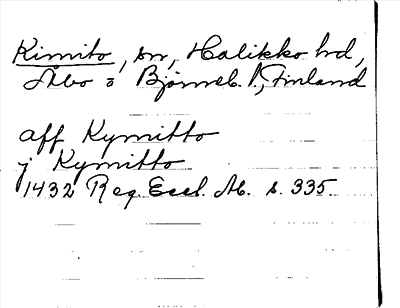 Kimito, sn, Halikko hd,
Åbo o Björneb. l., Finland
aff Kymitto
j Kymitto
1432 Reg. Eccl. Ab. s. 335.